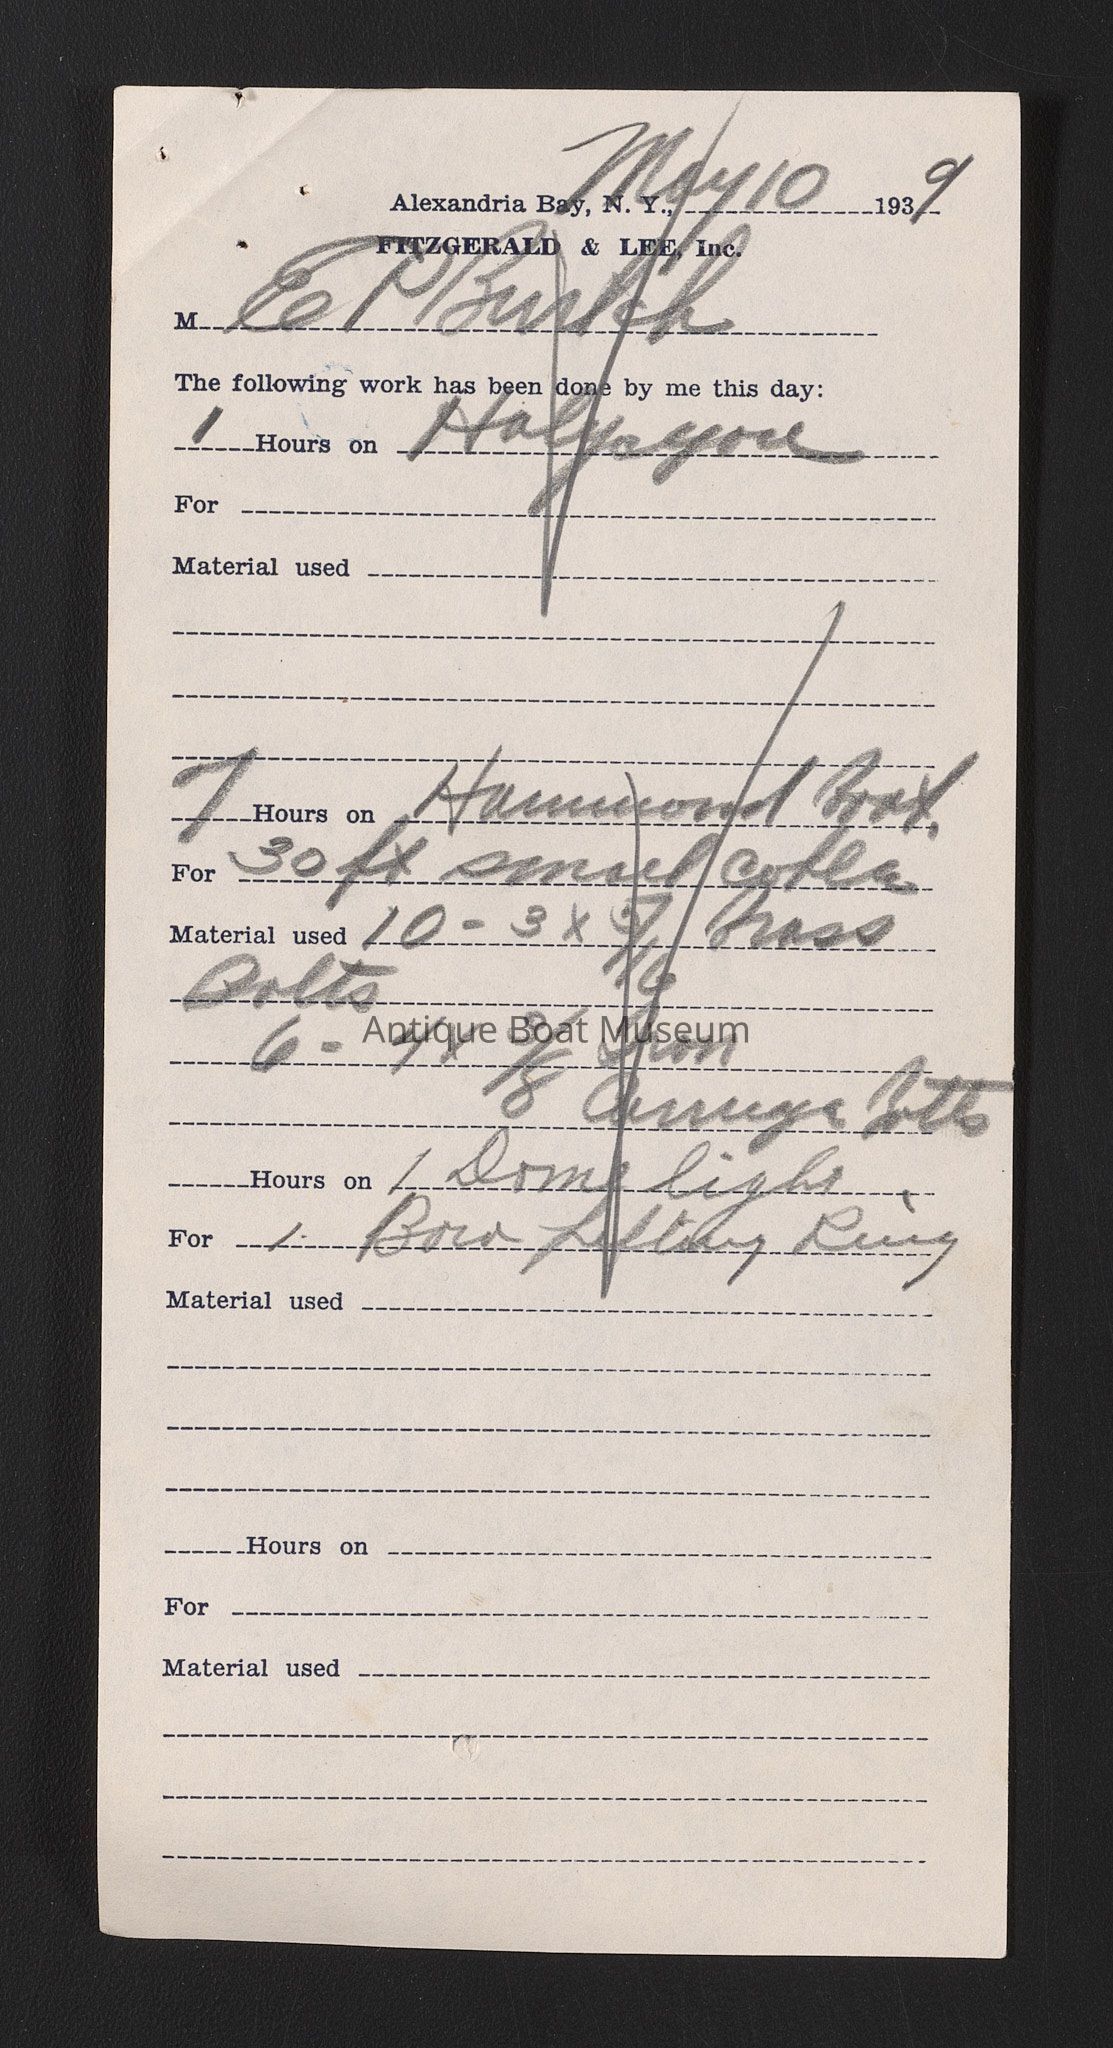 May 10
Alexandria Bay, N. Y., 1939
FITZGERALD & LEE, Inc.
M E P
The following work has been done by me this day:
1 Hours on
For
Material used
7 Hours on Hammond Boat.
For 30 ft
Material used 10 - 3 x 5/16 Brass
Bolts
Antique Boat Museum
6 - 4 x 3/8 Iron
Carriage Bolts
Hours on 1 Dome light
For 1. Bow Lifting Ring
Material used
Hours on
For
Material used